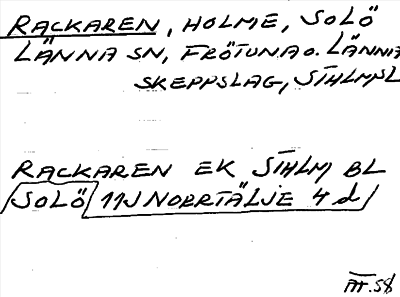 RACKAREN, HOLME, SOLÖ
LÄNNA SN, FRÖTUNA O. LÄNNA
SKEPPSLAG, STHLMSL
RACKAREN EK STHLM BL
SOLÖ 11J NORRTÄLJE 4 d